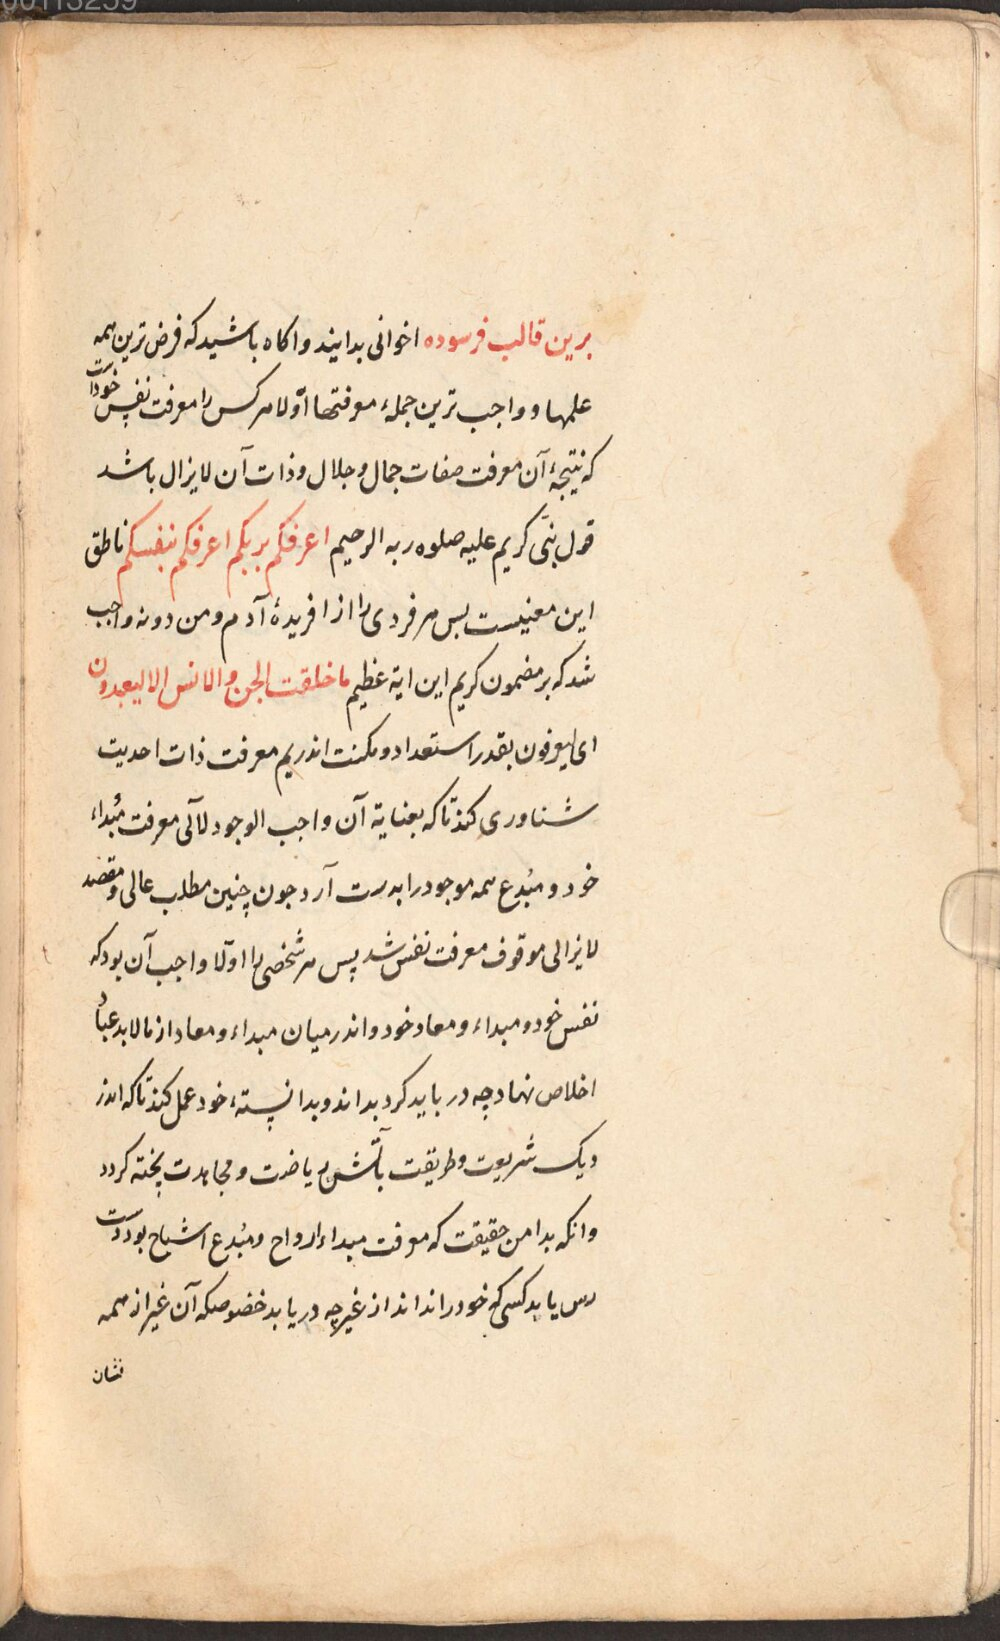 00113239
برین قالب فرسوده اخوانی بدانید و اکاه باشید که فرض ترین همه
علمها و واجب ترین جملهٔ معرفتها اوّلا هر کس را معرفت نفس خوداست
که نتیجهٔ آن معرفت صفات جمال و جلال و ذات آن لایزال باشد
قول نبّی کریم علیه صلوه ربه الرحیم اعرفکم بربکم اعرفکم بنفسکم ناطق
این معنیست بس هر فردی را از افریدهٔ آدم و من دونه واجب
شد که بر مضمون کریم این ایة عظیم ما خلقت الجن والانس الا لیعبدون
ای لیعرفون بقدر استعداد و مکنت اندریم معرفت ذات احدیت
شناوری کند تا که بعنایة آن واجب الوجود لآلی معرفت مُبداء
خود و مبُدع همه موجود را بدست آرد جون چنین مطلب عالی و مقصد
لایزالی موقوف معرفت نفس شد پس هر شخصی را اوّلا واجب آن بود که
نفس خود و مبداء و معاد خود و اندر میان مبداء و معاد از مالابد عباد
اخلاص نهاد چه در باید کرد بداند و بدانستهٔ خود عمل کند تا که اندر
دیک شریعت و طریقت بآتش ریاضت و مجاهدت پخته کردد
وانکه بدامن حقیقت که معرفت مبداء ارواح و مبُدع اشباح بود دست
رس یابد کسی که خود را نداند از غیر چه دریابد خصوصا که آن غیر از همه
نشان